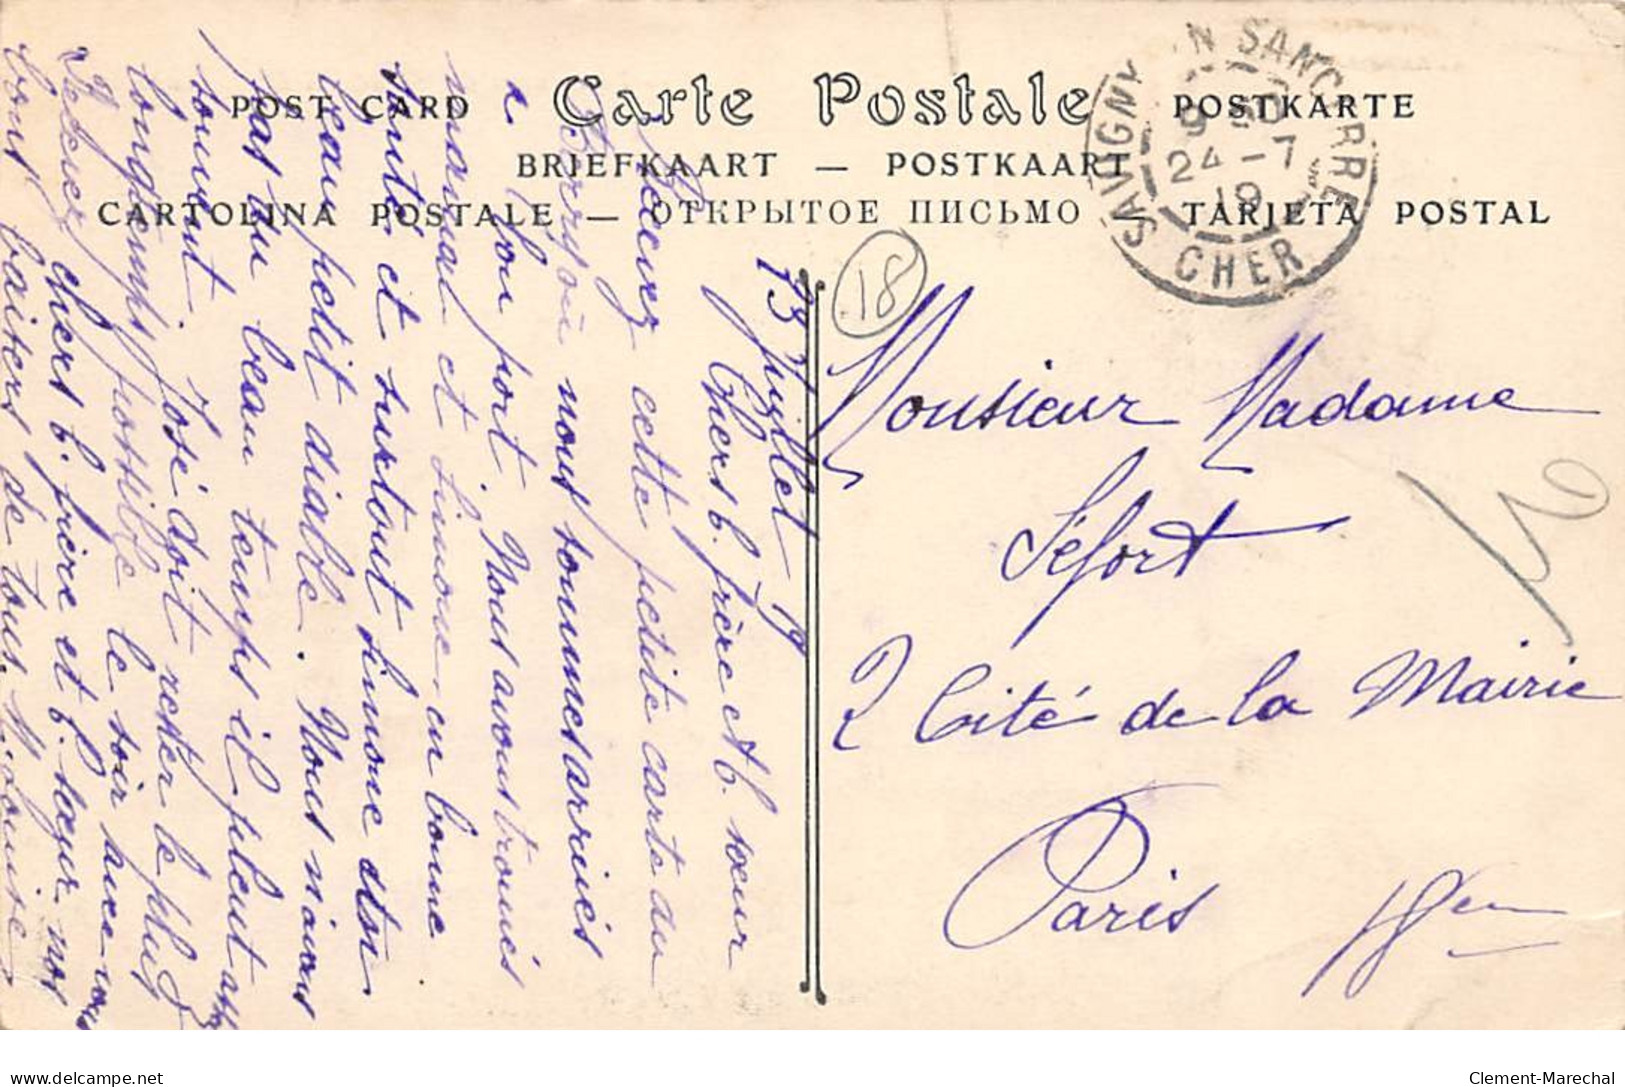 POST CARD Carte Postale POSTKARTE
BRIEFKAART — POSTKAART
CARTOLINA POSTALE — ОТКРЫТОЕ ПИСЬМО — TARJETA POSTAL
SAVIGNY EN SANCERRE
9
24-7
19
CHER
18
23 juillet 19
Chers b. frère et b. sœur
Recevez cette petite carte du
Berry où nous sommes arrivés
a bon port. Nous avons trouvés
maman et Simone en bonne
santé et surtout Simone
beau petit diable. Nous n'avons
pas du beau temps il pleut
souvent. José doit rester le plus
longtemps possible le soir avec
Recevez chers b. frère et b. sœur nos
bons baisers de tous.
Monsieur Madame
Séfort
2 Cité de la Mairie
Paris 18em
delcampe.net
Clement-Marechal